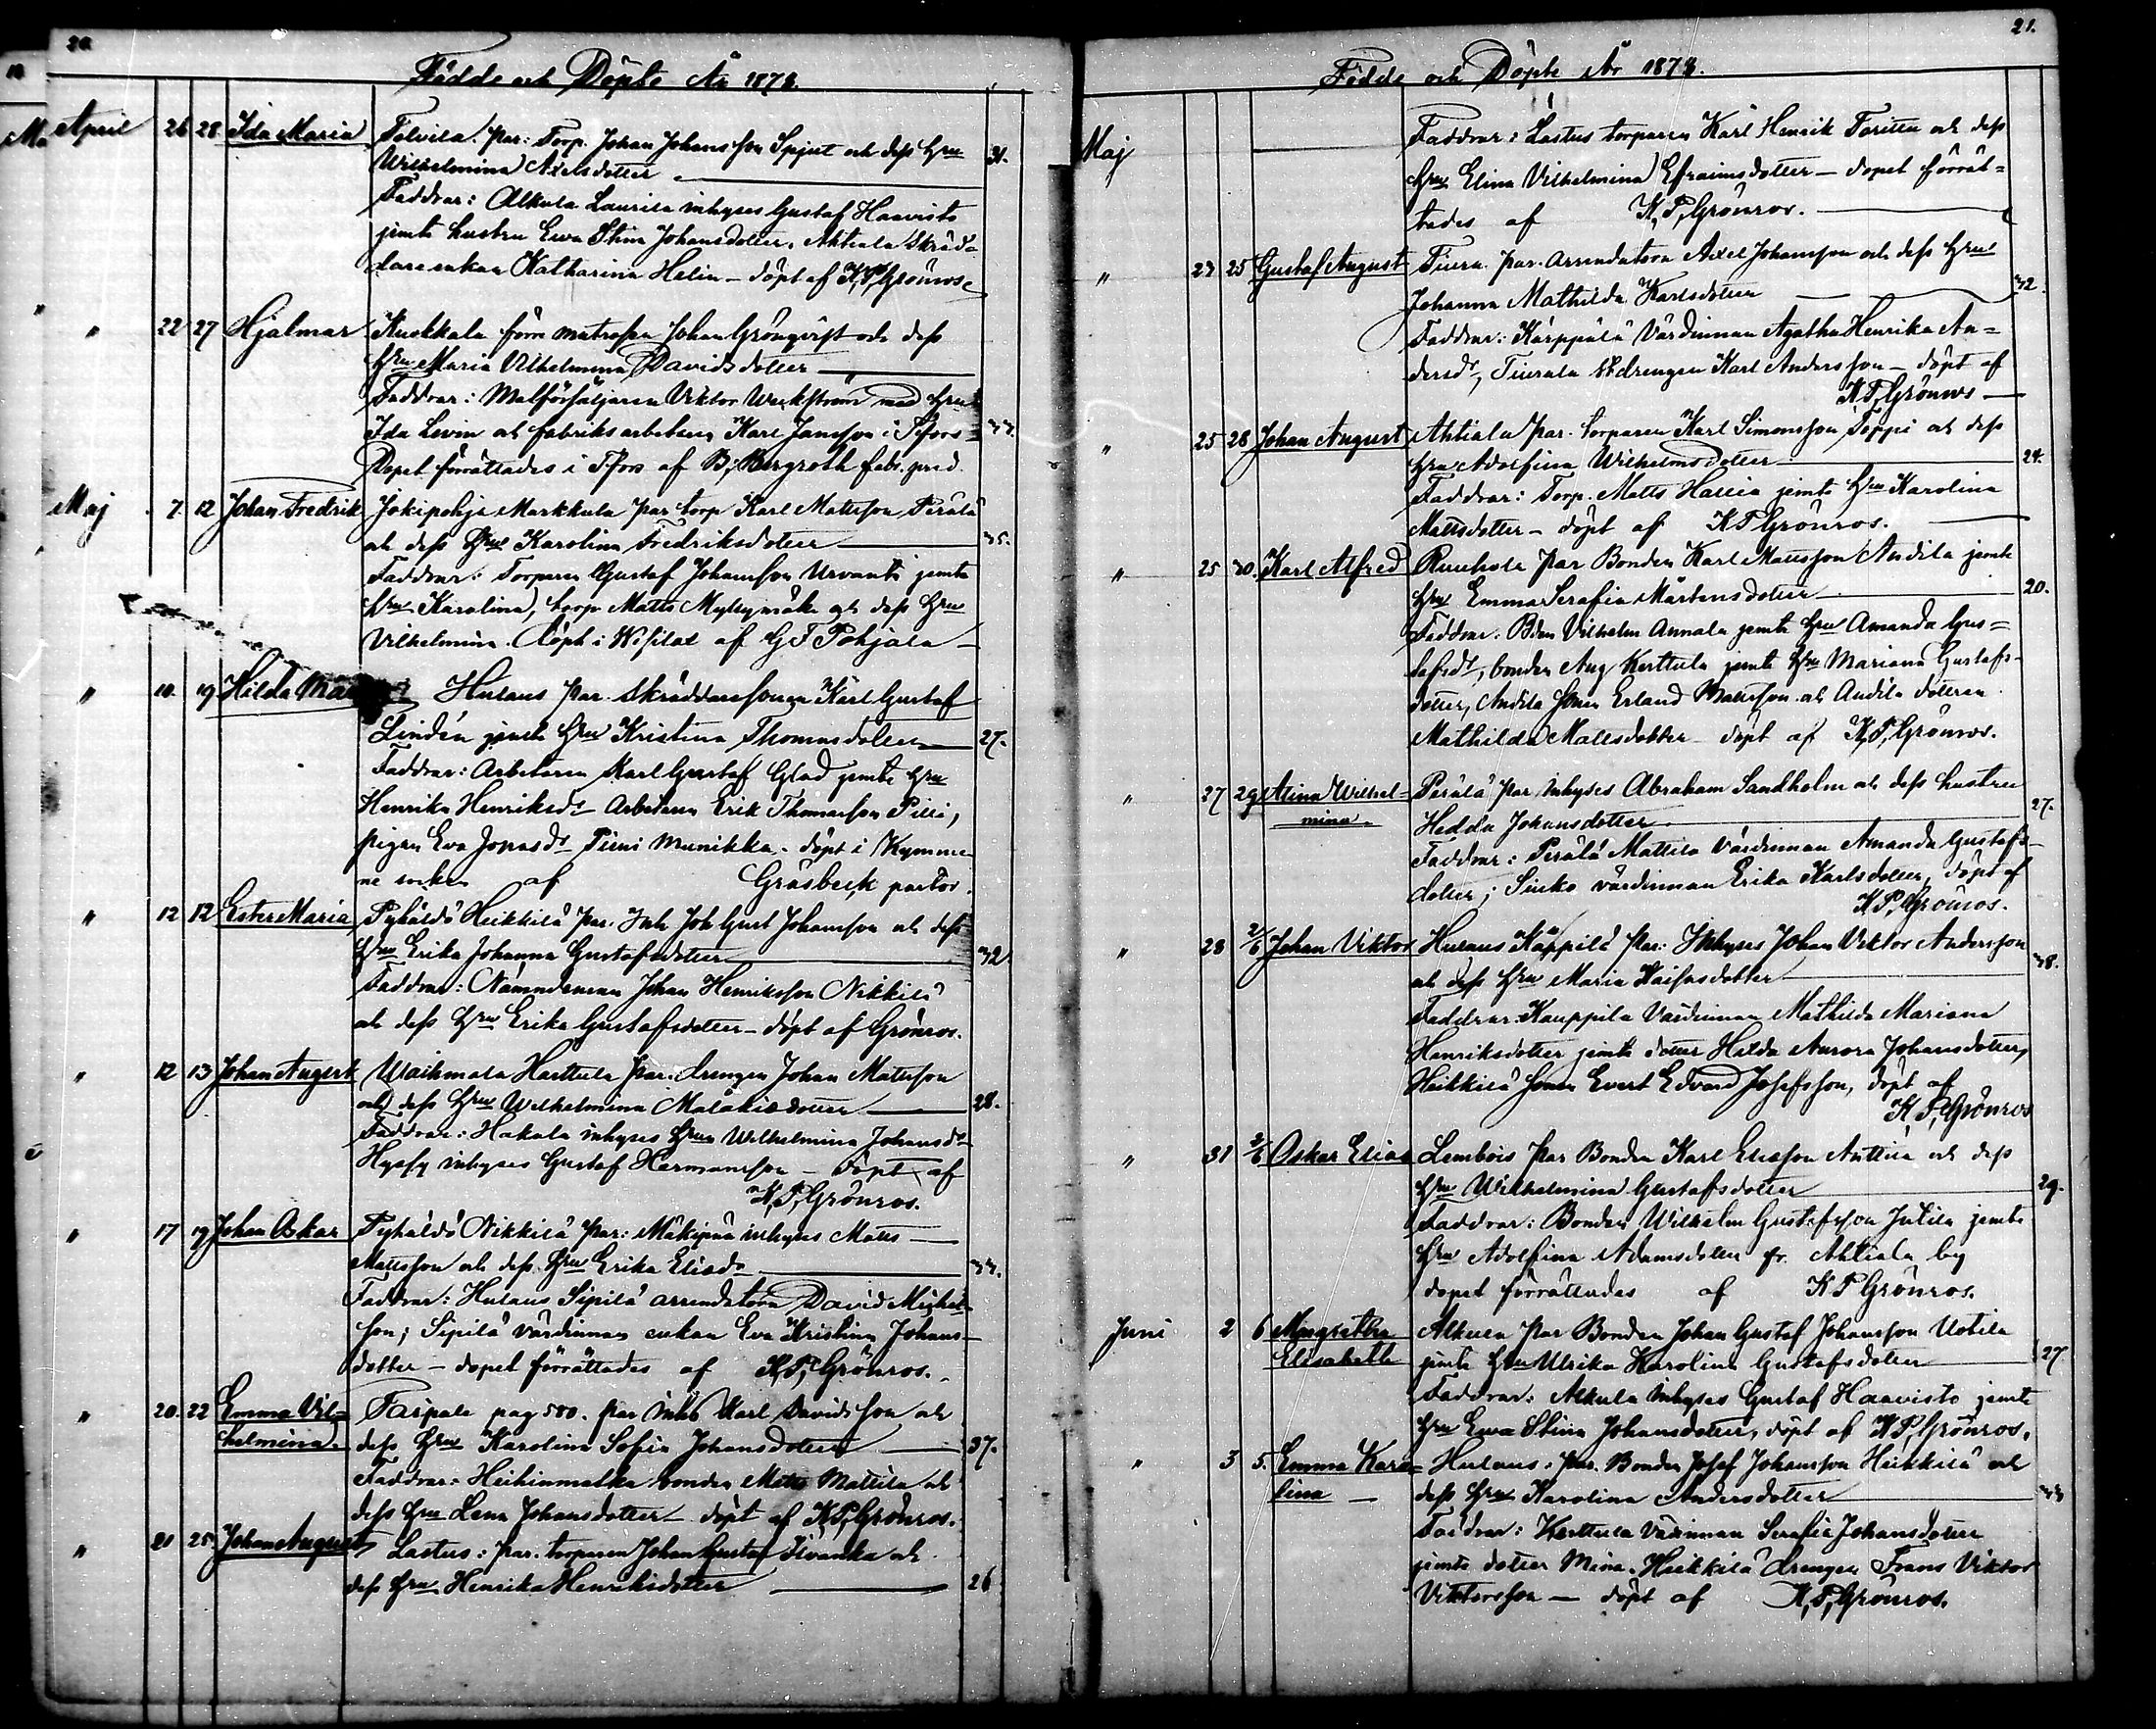 20.
Födde och Döpte År 1878.
April 26 28 Ida Maria Tolvila. Par: Torp. Johan Johansson Spjut och dess Hru 31.
Wilhelmina Axelsdotter
Faddrar: Alkula Laurila inhyses Gustaf Haavisto
jemte hustru Ewa Stina Johansdotter, Ahtiala Skräd-
dare enkan Katharina Helin - döpt af K, P, Grönros
" 22 27 Hjalmar Kuokkala förre matrosen Johan Grönqvist och dess
Hru Maria Vilhelmina Davidsdotter
Faddrar: Viktor med Hru
Ida Levin och fabriksarbetaren Karl Jansson i T:fors 33.
Dopet förrättades i T:fors af B, Bergroth fabr. pred.
Maj 7 12 Johan Fredrik Jokipohja Markkula par torp Karl Matsson Perälä
och dess Hru Karolina Fredriksdotter 35.
Faddrar: Torparen Gustaf Johansson Urvanti jemte
Hru Karolina, torp Matts Myllymäki och dess Hru
Vilhelmina. Döpt i af G F Pohjala
" 10. 19 Hilda Hulaus par. Skräddaresonen Karl Gustaf
Lindén jemte Hru Kristina Thomasdotter 27.
Faddrar: Arbetaren Karl Gustaf Glad jemte Hru
Henrika Henriksdr Arbetaren Erik Thomasson Pilli,
pigan Eva Jonasdr Tiuni Munikka. döpt i Kymme-
ne socken af Gräsbeck pastor.
" 12 12 Ester Maria Pyhäldö Heikkilä par. Inh Joh Gust Johansson och dess
Hru Erika Johanna Gustafsdotter 32
Faddrar: Nämndeman Johan Henriksson Nikkilä
och dess Hru Erika Gustafsdotter - döpt af Grönros.
" 12 13 Johan August Waihmala Harttula par. drengen Johan Matsson
och dess Hru Wilhelmina Malakiasdotter 28.
Faddrar: Hakala inhyses Hrun Wilhelmina Johansdr
inhyses Gustaf Hermansson - döpt af
K, P, Grönros.
" 17 19 Johan Oskar Pyhäldö Nikkilä par: Mäkipää inhyses Matts
Mattsson och dess Hru Erika Eliasdr 33.
Faddrar: Hulaus Sipilä arrendatorn David Michels-
son; Sipilä värdinnan enkan Eva Kristina Johans-
dotter - dopet förrättades af K, P, Grönros.
" 20. 22 Emma Vil- Tarpala pag 580. par inhs Karl Davidsson och
helmina. dess Hru Karolina Sofia Johansdotter 37.
Faddrar: bonden Matts Mattila och
dess Hru Lena Johansdotter - döpt af K, P, Grönros.
" 21 25. Johan August Lastus: par. torparen Johan Gustaf och
dess Hru Henrika Henriksdotter 26
21.
Födde och Döpte År 1878.
Maj Faddrar: Lastus torparen Karl Henrik och dess
Hru Elina Vilhelmina Efraimsdotter - dopet förrät-
tades af K, P, Grönros.
" 23 25 Gustaf August Tiura. par. Arrendatorn Axel Johansson och dess Hru
Johanna Mathilda Karlsdotter 32.
Faddrar: Kärppälä Värdinnan Agatha Henrika An-
dersdr, Tiurala drengen Karl Andersson - döpt af
K P, Grönros
" 25 28 Johan August Ahtiala par. torparen Karl Simonsson Seppi och dess
Hru Adolfina Wilhelmsdotter 24.
Faddrar: Torp. Matts Hallia jemte Hru Karolina
Mattsdotter - döpt af K P Grönros.
" 25 30. Karl Alfred Ruuhola par Bonden Karl Mattsson Andila jemte
Hru Emma Serafia Mårtensdotter 20.
Faddrar: Bden Vilhelm Annala jemte Hru Amanda Gus-
tafsdr, bonden Aug Kerttula jemte Hru Mariana Gustafs-
dotter, Andila Sonen Erland Mattsson och Andila dottren
Mathilda Mattsdotter döpt af K, P, Grönros.
" 27 29 Alina Wilhel- Perälä par inhyses Abraham Sandholm och dess hustru
mina. Hedda Johansdotter 27.
Faddrar: Perälä Mattila värdinnan Amanda Gustafs-
dotter; Sinko värdinnan Erika Karlsdotter, döpt af
K, P, Grönros.
" 28 2/6 Johan Viktor Hulaus par: Inhyses Johan Viktor Andersson
och dess Hru Maria Kaisasdotter 38.
Faddrar: Kauppila Värdinnan Mathilda Mariana
Henriksdotter jemte dotter Hilda Aurora Johansdotter,
Heikkilä Sonen Evert Edvard Josefsson, döpt af
K, P, Grönros
" 31 2/6 Oskar Elias Lembois par Bonden Karl Eliasson Anttila och dess
Hru Wilhelmina Gustafsdotter 29.
Faddrar: Bonden Wilhelm Gustafsson Jutila jemte
Hru Adolfina Adamsdotter fr. Ahtiala by
dopet förrättades af K P Grönros.
Juni 2 6 Margretha Alkula par Bonden Johan Gustaf Johansson Uotila
Elisabeth jemte Hru Ulrika Karolina Gustafsdotter 27
Faddrar: Alkula inhyses Gustaf Haavisto jemte
Hru Ewa Stina Johansdotter, döpt af K P, Grönros.
" 3 5. Emma Karo- Hulaus: par. Bonden Josef Johansson Heikkilä och
lina dess Hru Karolina Andersdotter 33
Faddrar: Kerttula värdinnan Serafia Johansdotter
jemte dotter Mina. Heikkilä drengen Frans Viktor
Viktorsson - döpt af K, P, Grönros.